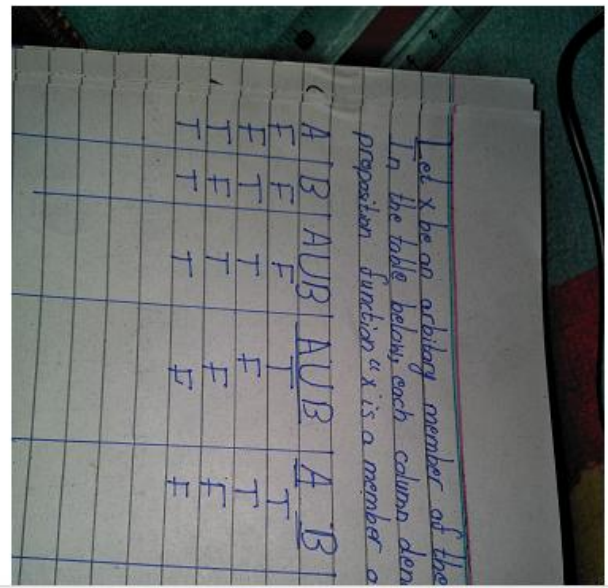 Let x be an arbitary member of the
In the table below, each column den
proposition function "x is a member o
A B AUB AUB A B
F F F T T
F T T F T
T F T F F
T T T F F